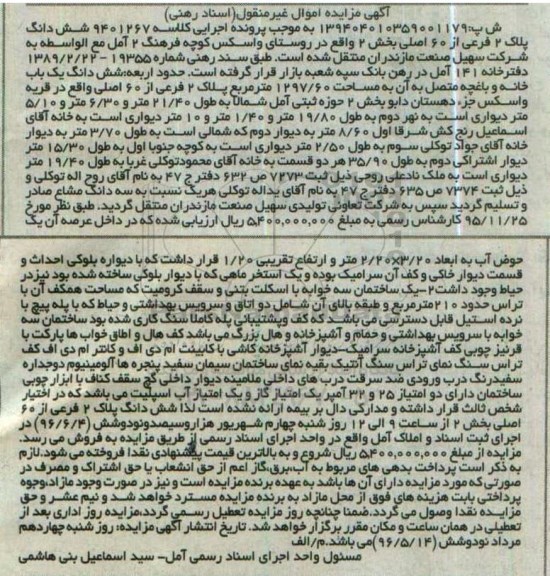 آگهی مزایده اموال غیرمنقول(اسناد رهنی)
ش پ:۱۳۹۴۰۴۰۱۰۳۵۹۰۰۱۱۷۹ به موجب پرونده اجرایی کلاسه ۹۴۰۱۲۶۷ شش دانگ
پلاک ۲ فرعی از ۶۰ اصلی بخش ۲ واقع در روستای واسکس کوچه فرهنگ ۲ آمل مع الواسطه به
شرکت سهیل صنعت مازندران منتقل شده است. طبق سند رهنی شماره ۱۹۳۵۵ - ۱۳۸۹/۲/۲۲
دفترخانه ۱۴۱ آمل در رهن بانک سپه شعبه بازار قرار گرفته است. حدود اربعه:شش دانگ یک باب
خانه و باغچه متصل به آن به مساحت ۱۲۹۷/۶۰ مترمربع پلاک ۲ فرعی از ۶۰ اصلی واقع در قریه
واسکس جزء دهستان دابو بخش ۲ حوزه ثبتی آمل شمالا به طول ۲۱/۴۰ متر و ۶/۳۰ متر و ۵/۱۰
متر دیواری است به نهر دوم به طول ۱۹/۸۰ متر و ۱/۴۰ متر و ۱۰ متر دیواری است به خانه آقای
اسماعیل رنج کش شرقا اول ۸/۶۰ متر به دیوار دوم که شمالی است به طول ۳/۷۰ متر به دیوار
خانه آقای جواد توکلی سوم به طول ۲/۵۰ متر دیواری است به کوچه جنوبا اول به طول ۱۵/۳۰ متر
دیوار اشتراکی دوم به طول ۳۵/۹۰ هر دو قسمت به خانه آقای محمودتوکلی غربا به طول ۱۹/۴۰ متر
دیواری است به ملک نادعلی روحی ذیل ثبت ۷۲۷۳ ص ۶۳۲ دفتر ج ۴۷ به نام آقای روح اله توکلی و
ذیل ثبت ۷۳۷۴ ص ۶۳۵ دفتر ج ۴۷ به نام آقای یداله توکلی هریک نسبت به سه دانگ مشاع صادر
و تسلیم گردید سپس به شرکت تعاونی تولیدی سهیل صنعت مازندران منتقل گردید. طبق نظر مورخ
۹۵/۱۱/۲۵ کارشناس رسمی به مبلغ ۵,۴۰۰,۰۰۰,۰۰۰ ریال ارزیابی شده که در داخل عرصه آن یک
حوض آب به ابعاد ۲/۲۰×۳/۲۰ متر و ارتفاع تقریبی ۱/۲۰ قرار داشت که با دیواره بلوکی احداث و
قسمت دیوار خاکی و کف آن سرامیک بوده و یک استخر ماهی که با دیوار بلوکی ساخته شده بود نیز در
حیاط وجود داشت۲-یک ساختمان سه خوابه با اسکلت بتنی و سقف کرومیت که مساحت همکف آن با
تراس حدود ۲۱۰ مترمربع و طبقه بالای آن شامل دو اتاق و سرویس بهداشتی و حیاط که با پله پیچ با
نرده استیل قابل دسترسی می باشد که کف وپشتیبانی پله کاملا سنگ کاری شده بود ساختمان سه
خوابه با سرویس بهداشتی و حمام و آشپزخانه و هال بزرگ می باشد کف هال و اطاق خواب ها پارکت با
قرنیز چوبی کف آشپزخانه سرامیک-دیوار آشپزخانه کاشی با کابینت ام دی اف و کانتر ام دی اف کف
تراس سنگ نمای تراس سنگ آنتیک بقیه نمای ساختمان سیمان سفید پنجره ها آلومینیوم دوجداره
سفیدرنگ درب ورودی ضد سرقت درب های داخلی ملامینه دیوار داخلی گچ سقف کناف با ابزار چوبی
ساختمان دارای دو امتیاز ۲۵ و ۳۲ آمپر یک امتیاز گاز و یک امتیاز آب اسپلیت می باشد که در اختیار
شخص ثالث قرار داشته و مدارکی دال بر بیمه ارائه نشده است لذا شش دانگ پلاک ۲ فرعی از ۶۰
اصلی بخش ۲ از ساعت ۹ الی ۱۲ روز شنبه چهارم شهریور هزاروسیصدونودوشش (۹۶/۶/۴) در
اجرای ثبت اسناد و املاک آمل واقع در واحد اجرای اسناد رسمی از طریق مزایده به فروش می رسد.
مزایده از مبلغ ۵,۴۰۰,۰۰۰,۰۰۰ ریال شروع و به بالاترین قیمت پیشنهادی نقدا فروخته می شود.لازم
به ذکر است پرداخت بدهی های مربوط به آب،برق،گاز اعم از حق انشعاب یا حق اشتراک و مصرف در
صورتی که مورد مزایده دارای آن ها باشد به عهده برنده مزایده است و نیز در صورت وجود مازاد،وجوه
پرداختی بابت هزینه های فوق از محل مازاد به برنده مزایده مسترد خواهد شد و نیم عشر و حق
مزایده نقدا وصول می گردد.ضمنا چنانچه روز مزایده تعطیل رسمی گردد،مزایده روز اداری بعد از
تعطیلی در همان ساعت و مکان مقرر برگزار خواهد شد. تاریخ انتشار آگهی مزایده: روز شنبه چهاردهم
مرداد نودوشش (۹۶/۵/۱۴)می باشد.م/الف
مسئول واحد اجرای اسناد رسمی آمل- سید اسماعیل بنی هاشمی